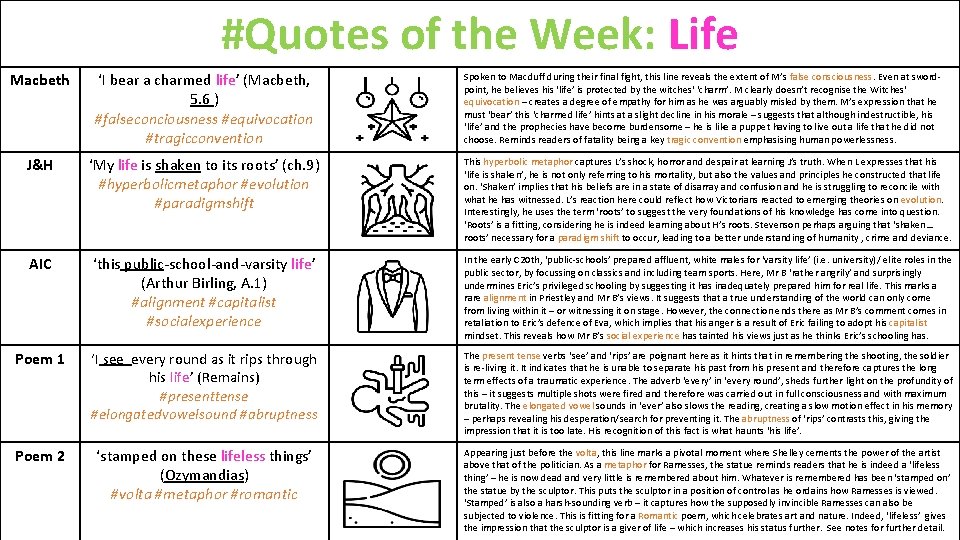 #Quotes of the Week: Life
Macbeth
‘I bear a charmed life’ (Macbeth,
5.6 )
#falseconciousness #equivocation
#tragicconvention
Spoken to Macduff during their final fight, this line reveals the extent of M’s false consciousness. Even at sword-
point, he believes his ‘life’ is protected by the witches’ ‘charm’. M clearly doesn’t recognise the Witches’
equivocation – creates a degree of empathy for him as he was arguably misled by them. M’s expression that he
must ‘bear’ this ‘charmed life’ hints at a slight decline in his morale – suggests that although indestructible, his
‘life’ and the prophecies have become burdensome – he is like a puppet having to live out a life that he did not
choose. Reminds readers of fatality being a key tragic convention emphasising human powerlessness.
J&H
‘My life is shaken to its roots’ (ch.9)
#hyperbolicmetaphor #evolution
#paradigmshift
This hyperbolic metaphor captures L’s shock, horror and despair at learning J’s truth. When L expresses that his
‘life is shaken’, he is not only referring to his mortality, but also the values and principles he constructed that life
on. ‘Shaken’ implies that his beliefs are in a state of disarray and confusion and he is struggling to reconcile with
what he has witnessed. L’s reaction here could reflect how Victorians reacted to emerging theories on evolution.
Interestingly, he uses the term ‘roots’ to suggest the very foundations of his knowledge has come into question.
‘Roots’ is a fitting, considering he is indeed learning about H’s roots. Stevenson perhaps arguing that ‘shaken…
roots’ necessary for a paradigm shift to occur, leading to a better understanding of humanity , crime and deviance.
AIC
‘this public-school-and-varsity life’
(Arthur Birling, A.1)
#alignment #capitalist
#socialexperience
In the early C20th, ‘public-schools’ prepared affluent, white males for ‘varsity life’ (i.e. university)/ elite roles in the
public sector, by focussing on classics and including team sports. Here, Mr B ‘rather angrily’ and surprisingly
undermines Eric’s privileged schooling by suggesting it has inadequately prepared him for real life. This marks a
rare alignment in Priestley and Mr B’s views. It suggests that a true understanding of the world can only come
from living within it – or witnessing it on stage. However, the connection ends there as Mr B’s comment comes in
retaliation to Eric’s defence of Eva, which implies that his anger is a result of Eric failing to adopt his capitalist
mindset. This reveals how Mr B’s social experience has tainted his views just as he thinks Eric’s schooling has.
Poem 1
‘I see every round as it rips through
his life’ (Remains)
#presenttense
#elongatedvowelsound #abruptness
The present tense verbs ‘see’ and ‘rips’ are poignant here as it hints that in remembering the shooting, the soldier
is re-living it. It indicates that he is unable to separate his past from his present and therefore captures the long
term effects of a traumatic experience. The adverb ‘every’ in ‘every round’, sheds further light on the profundity of
this – it suggests multiple shots were fired and therefore was carried out in full consciousness and with maximum
brutality. The elongated vowel sounds in ‘ever’ also slows the reading, creating a slow motion effect in his memory
– perhaps revealing his desperation/search for preventing it. The abruptness of ‘rips’ contrasts this, giving the
impression that it is too late. His recognition of this fact is what haunts ‘his life’.
Poem 2
‘stamped on these lifeless things’
(Ozymandias)
#volta #metaphor #romantic
Appearing just before the volta, this line marks a pivotal moment where Shelley cements the power of the artist
above that of the politician. As a metaphor for Ramesses, the statue reminds readers that he is indeed a ‘lifeless
thing’ – he is now dead and very little is remembered about him. Whatever is remembered has been ‘stamped on’
the statue by the sculptor. This puts the sculptor in a position of control as he ordains how Ramesses is viewed.
‘Stamped’ is also a harsh-sounding verb – it captures how the supposedly invincible Ramesses can also be
subjected to violence. This is fitting for a Romantic poem, which celebrates art and nature. Indeed, ‘lifeless’ gives
the impression that the sculptor is a giver of life – which increases his status further. See notes for further detail.